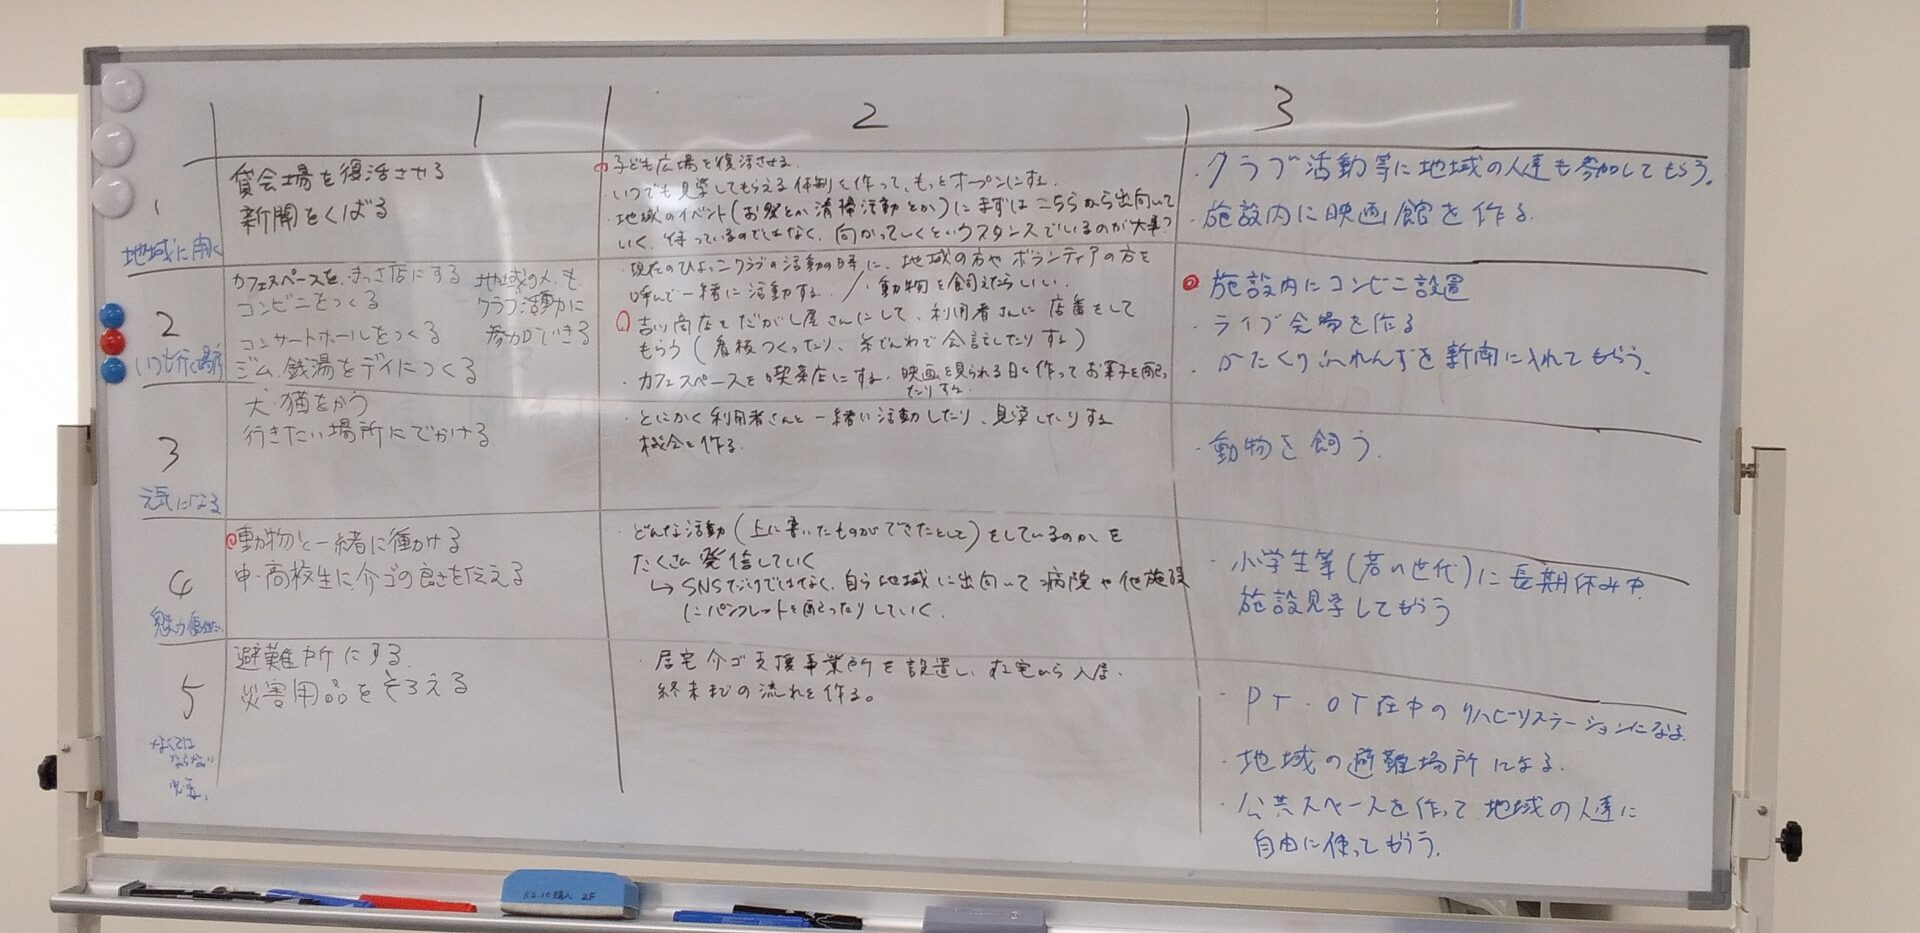 1 2 3
1
地域に開く
貸会場を復活させる
新聞をくばる
子ども広場を復活させる。
・いつでも見学してもらえる体制を作って、もっとオープンにする。
・地域のイベント(お祭とか清掃活動とか)にまずはこちらから出向いて
いく。待っているのではなく、向かっていくというスタンスでいるのが大事?
・クラブ活動等に地域の人達も参加してもらう。
・施設内に映画館を作る。
2
いつも行く場所
カフェスペースを、きっさ店にする
コンビニをつくる
コンサートホールをつくる
ジム、銭湯をデイにつくる
地域の人も
クラブ活動に
参加できる
・現在のひよっこクラブの活動の時に、地域の方やボランティアの方を
呼んで一緒に活動する。/・動物を飼えたらいい。
商店をだがし屋さんにして、利用者さんに店番をして
もらう(看板つくったり、糸でんわで会話したりする)
・カフェスペースを喫茶店にする・映画を見られる日を作ってお菓子を配っ
たりする。
施設内にコンビニ設置
・ライブ会場を作る
・かたくりふれんずを新聞に入れてもらう。
3
元気になる
犬・猫をかう
行きたい場所にでかける。
・とにかく利用者さんと一緒に活動したり、見学したりする
機会を作る。
・動物を飼う。
4
魅力
動物と一緒に働ける
中・高校生に介ゴの良さを伝える
・どんな活動(上に書いたものができたとして)をしているのかを
たくさん発信していく
↳SNSだけではなく、自ら地域に出向いて病院や他施設
にパンフレットを配ったりしていく。
・小学生等(若い世代)に長期休み中
施設見学してもらう
5
なくては
ならない
避難所にする。
災害用品をそろえる
・居宅介ゴ支援事業所を設置し、在宅から入居、
終末までの流れを作る。
・PT・OT在中のリハビリステーションになる。
・地域の避難場所になる。
・公共スペースを作って地域の人達に
自由に使ってもらう。
2F